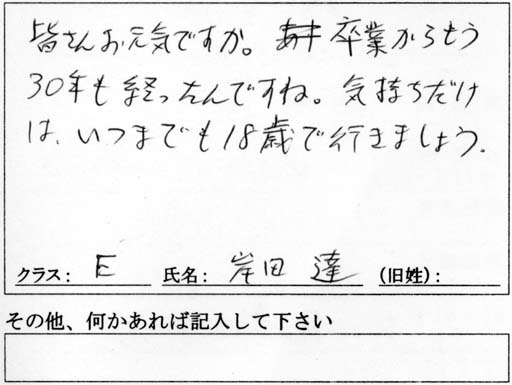 皆さんお元気ですか。卒業からもう
30年も経ったんですね。気持ちだけ
は、いつまでも18歳で行きましょう.
クラス: E 氏名: 岸田 達 (旧姓):
その他、何かあれば記入して下さい